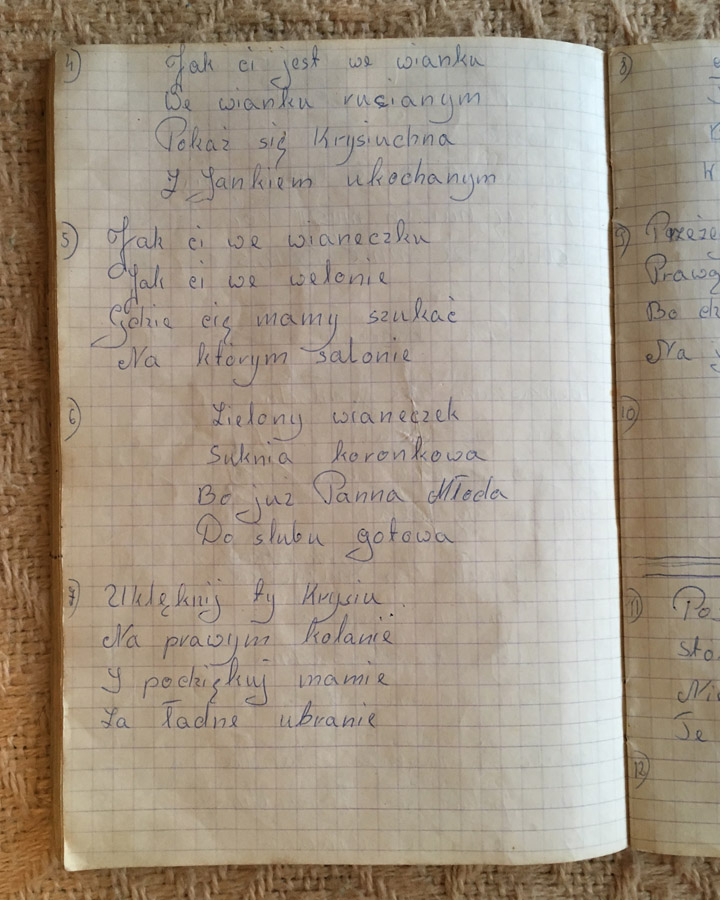 4)
Jak ci jest we wianku
We wianku rucianym
Pokaż się Krysiuchna
Z Jankiem ukochanym
5)
Jak ci we wianeczku
Jak ci we welonie
Gdzie cię mamy szukać
Na ktorym salonie
6)
Zielony wianeczek
Suknia koronkowa
Bo już Panna Młoda
Do slubu gotowa
7)
Uklęknij ty Krysiu
Na prawym kolanie
I podziękuj mamie
Za ładne ubranie
8)
9)
10)
11)
12)